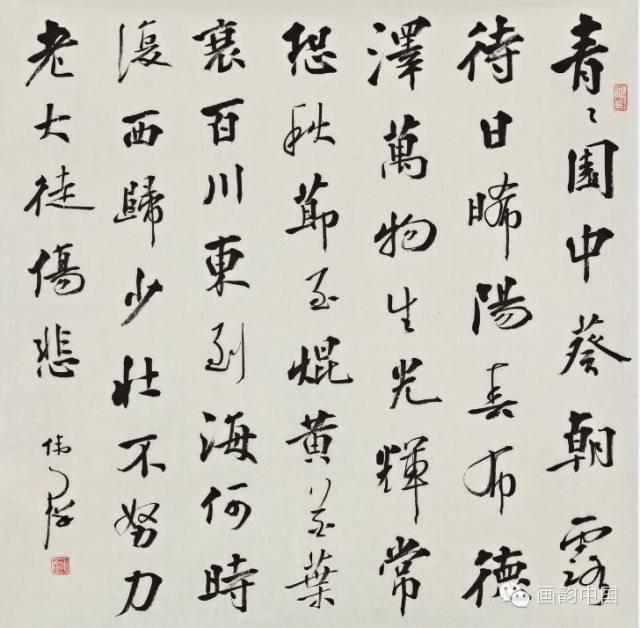 青〻園中葵朝露
待日晞陽春布德
澤萬物生光輝常
恐秋節至焜黃華葉
衰百川東到海何時
復西歸少壯不努力
老大徒傷悲
画韵中国